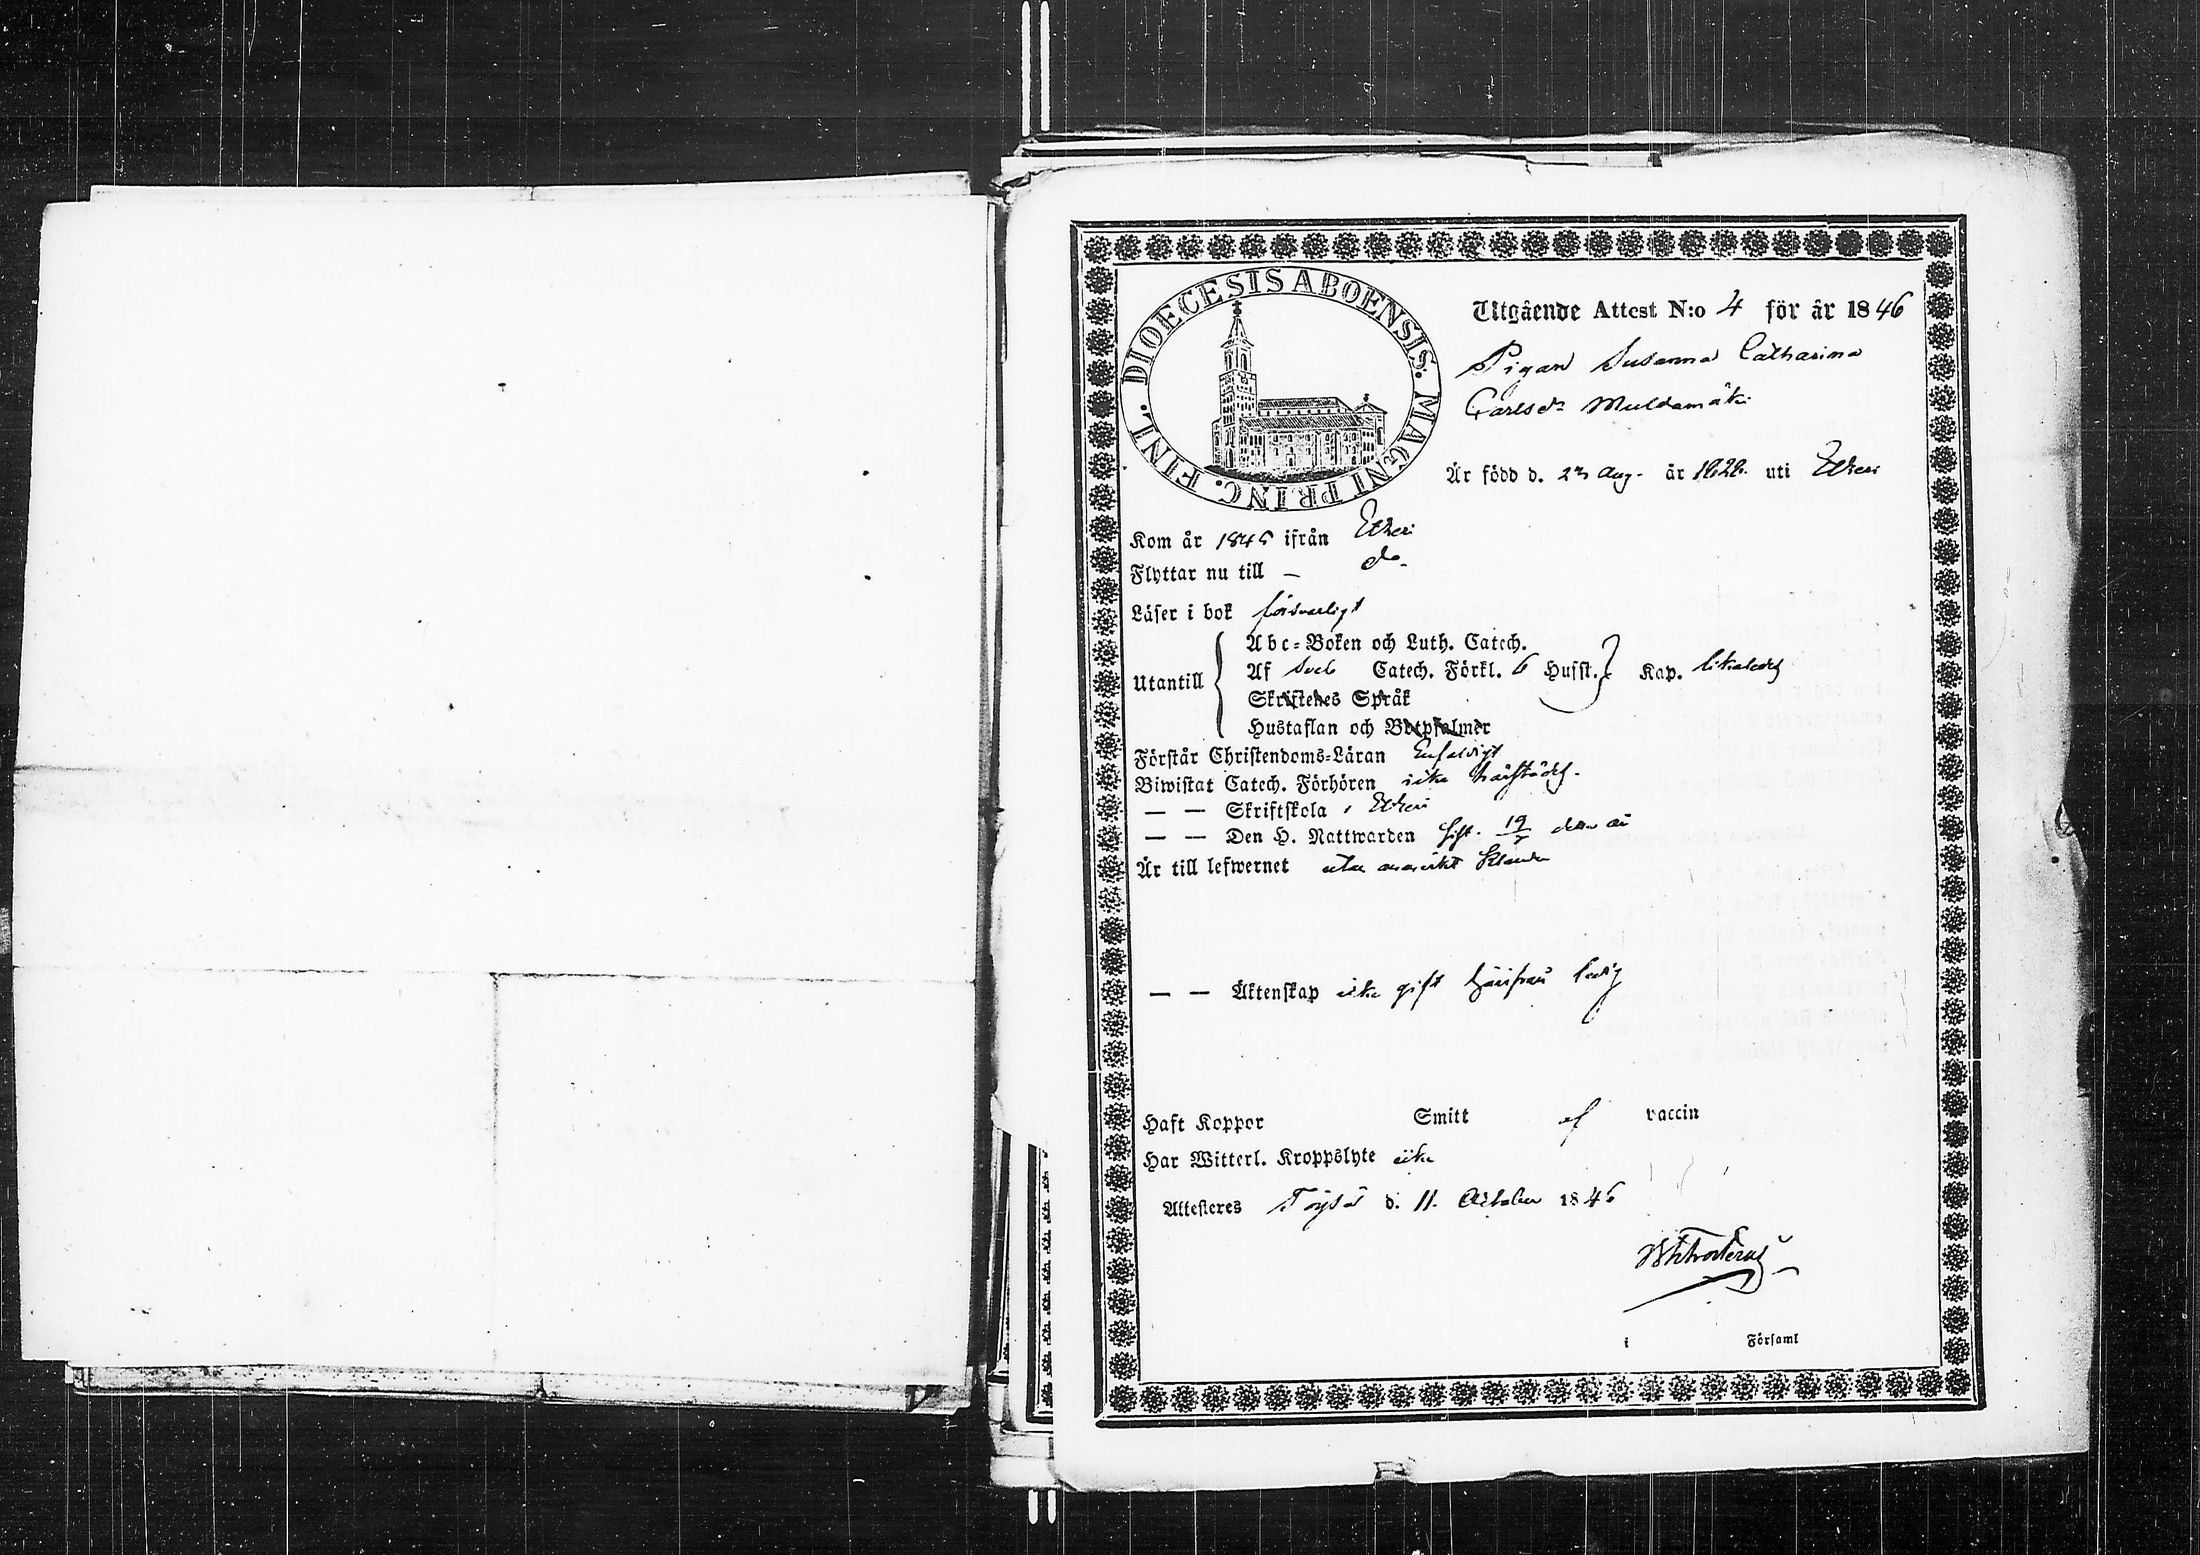 DIOECESIS ABOENSIS. MAGNI PRINC. FINL.
Utgående Attest N:o 4 för år 1846
Pigan Susanna Catharina
Carlsdr Muldamäki
Är född d. 23 Aug. år 1828 uti Etseri
Kom år 1845 ifrån Etseri
Flyttar nu till — do.
Läser i bok försvarligt
Utantill
Abc-Boken och Luth. Catech.
Af Sveb Catech. Förkl. 6 Husst. Kap.
Skriftenes Språk
Hustaflan och Botpsalmer
Förstår Christendoms-Läran Enfaldigt
Biwistat Catech. Förhören icke härstädes.
— — Skriftskola i Etseri
— — Den H. Nattwarden sist. 19/7 detta år
Är till lefwernet utan anmärkt klander
— — Äktenskap icke gift härifrån ledig
Haft Koppor Smitt af vaccin
Har Witterl. Kroppslyte icke
Attesteres Töysä d. 11. October 1846
i Församl